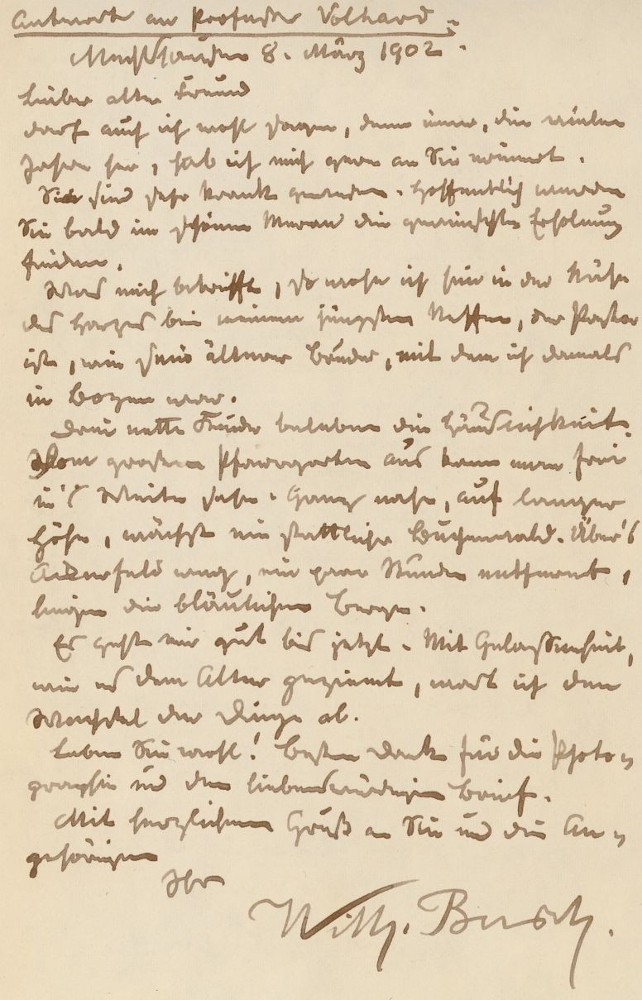 Antwort an Professor Volhard.
Mechtshausen 8. März 1902.
Lieber alter Freund
darf auch ich wohl sagen, denn immer, die vielen
Jahre her, hab ich mich gern an Sie erinnert.
Sie sind sehr krank gewesen. Hoffentlich werden
Sie bald im schönen Meran die gewünschte Erholung
finden.
Was mich betrifft, so wohn ich hier in der Nähe
des Harzes bei meinem jüngsten Neffen, der Pastor
ist, wie sein älterer Bruder, mit dem ich damals
in Bozen war.
Drei nette Kinder beleben die Häuslichkeit.
Vom großen Pfarrgarten aus kann man frei
in's Weite sehn. Ganz nahe, auf langer
Höhe, wächst ein stattlicher Buchenwald. Über's
Ackerfeld weg, ein paar Stunden entfernt,
liegen die bläulichen Berge.
Es geht mir gut bis jetzt. Mit Gelassenheit,
wie es dem Alter geziemt, wart ich den
Wechsel der Dinge ab.
Leben Sie wohl! Besten Dank für die Photo-
graphie und den liebenswürdigen Brief.
Mit herzlichem Gruß an Sie und die An-
gehörigen
Ihr
Wilh. Busch.